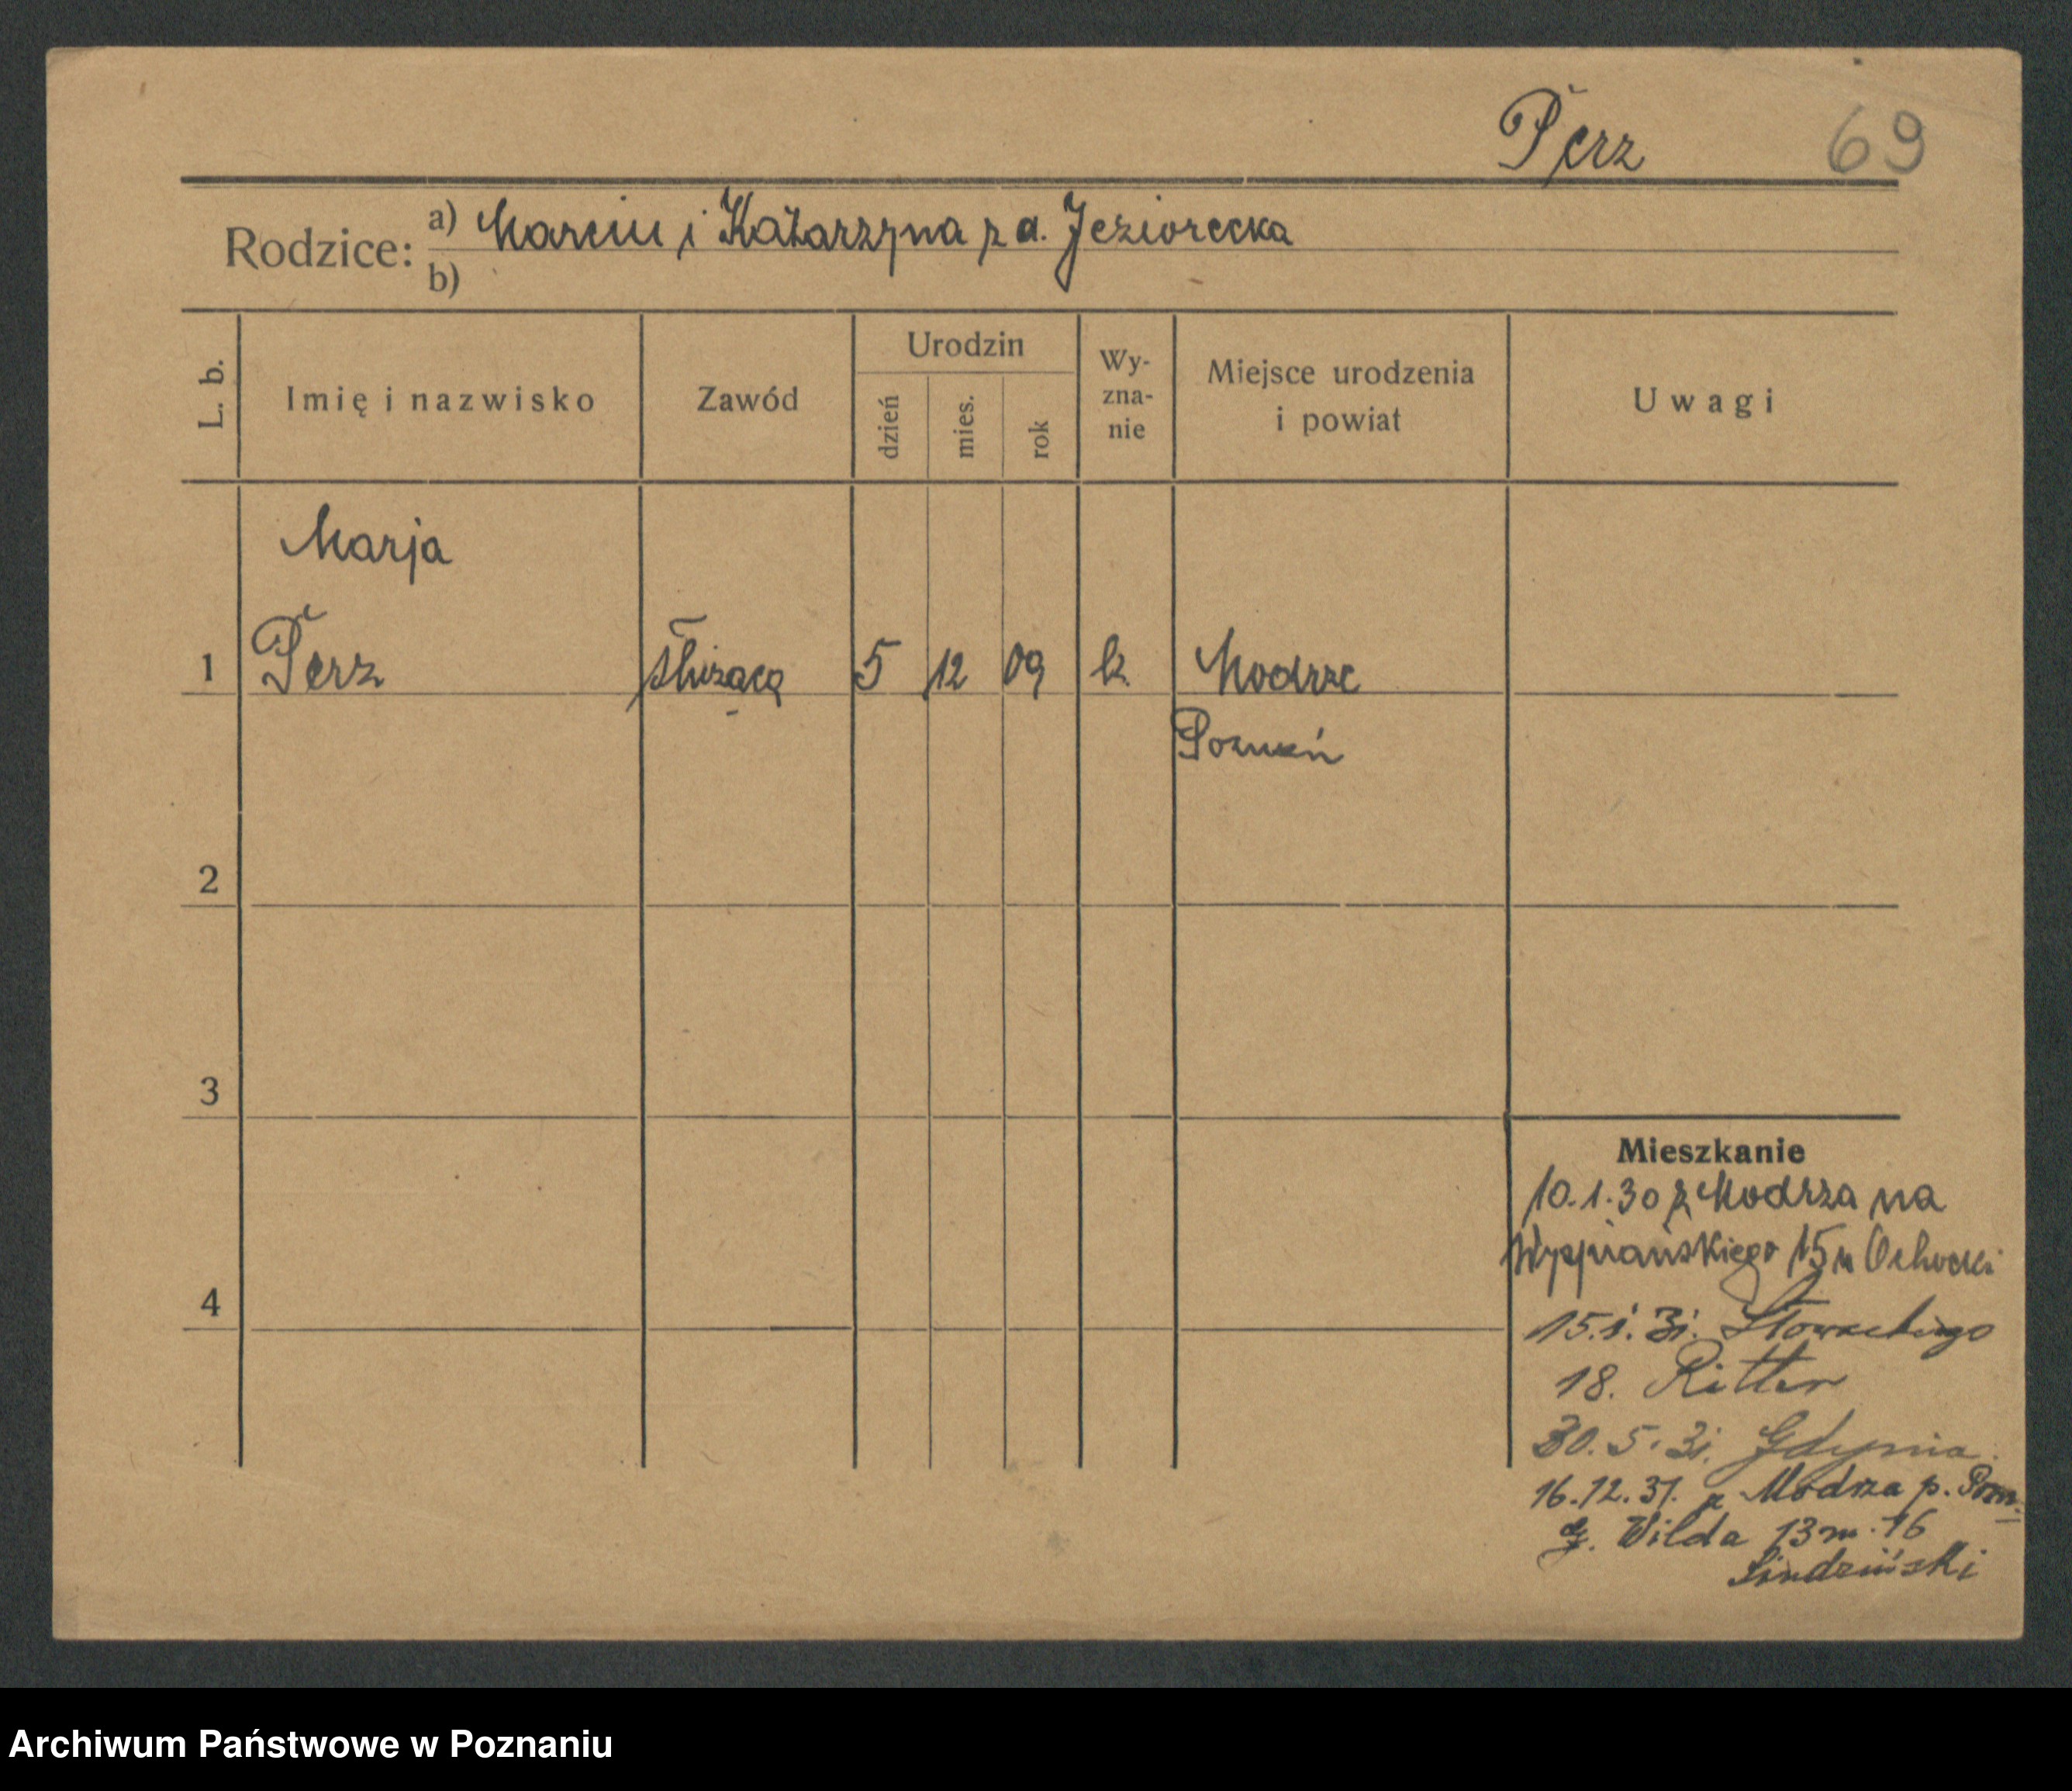 Perz 69
Rodzice: a) Marcin i Katarzyna z d. Jeziorecka
b)
L. b. Imię i nazwisko Zawód Urodzin dzień mies. rok Wy-zna-nie Miejsce urodzenia i powiat Uwagi
Marja
1 Perz służąca 5 12 09 k. Modrze
Poznań
2
3
4
Mieszkanie
10.1.30 z Modrza na
Wyspiańskiego 15 u Ochocki
15.1.31. Słowackiego
18. Ritter
30.5.31. Gdynia
16.12.31. z Modrza p. Pozn.
g. Wilda 13 m. 16
Archiwum Państwowe w Poznaniu